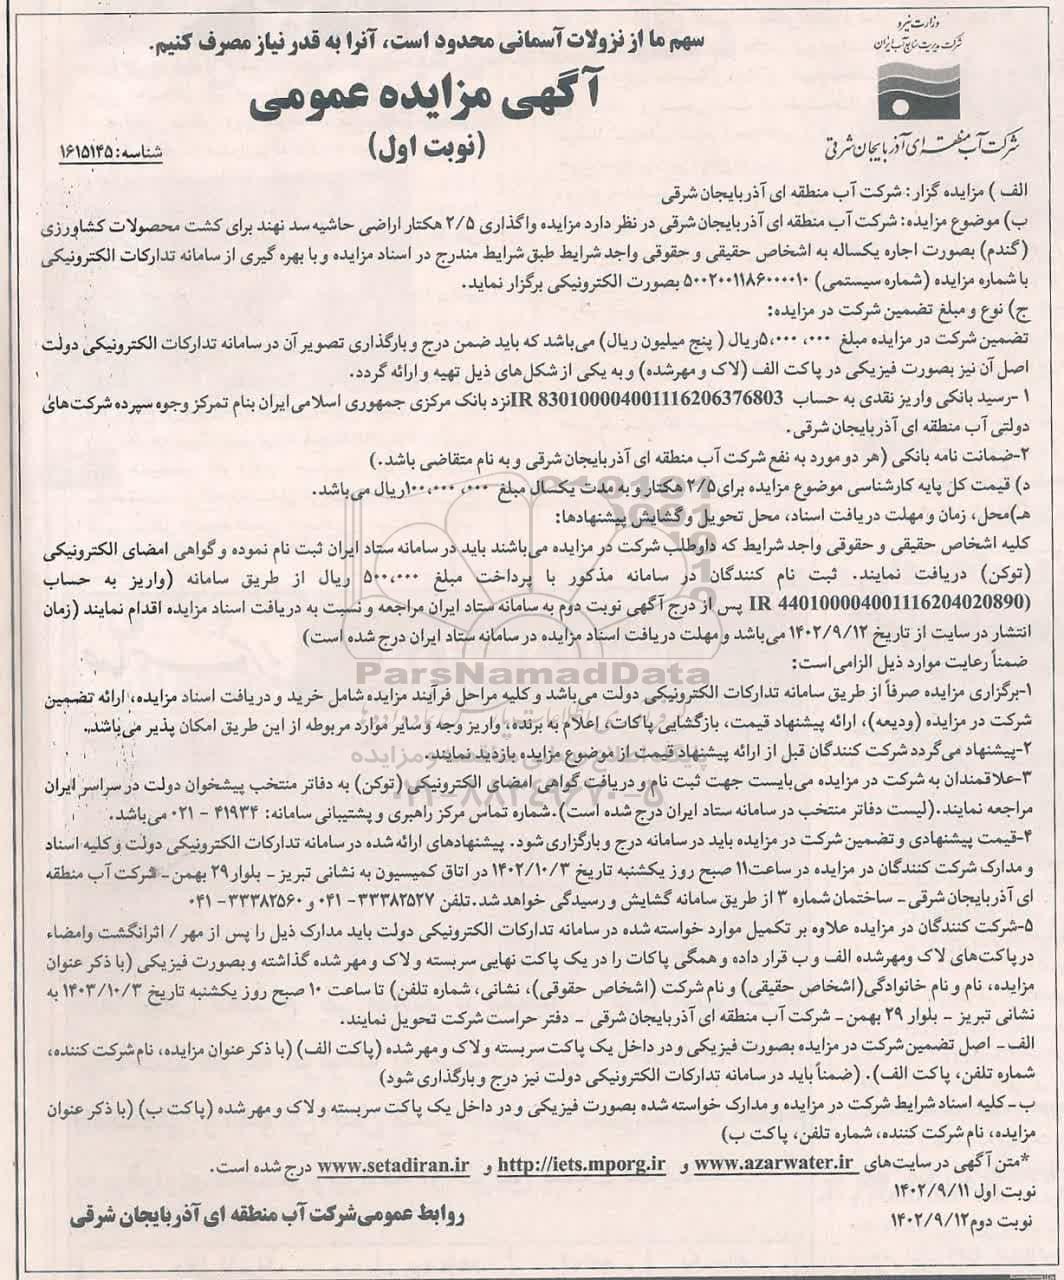 وزارت نیرو
شرکت مدیریت منابع آب ایران
شرکت آب منطقه ای آذربایجان شرقی
سهم ما از نزولات آسمانی محدود است، آنرا به قدر نیاز مصرف کنیم.
آگهی مزایده عمومی
(نوبت اول)
شناسه: ۱۶۱۵۱۴۵
الف) مزایده گزار: شرکت آب منطقه ای آذربایجان شرقی
ب) موضوع مزایده: شرکت آب منطقه ای آذربایجان شرقی در نظر دارد مزایده واگذاری ۲/۵ هکتار اراضی حاشیه سد نهند برای کشت محصولات کشاورزی
(گندم) بصورت اجاره یکساله به اشخاص حقیقی و حقوقی واجد شرایط طبق شرایط مندرج در اسناد مزایده و با بهره گیری از سامانه تدارکات الکترونیکی
با شماره مزایده (شماره سیستمی) ۵۰۰۲۰۰۱۱۸۶۰۰۰۰۱۰ بصورت الکترونیکی برگزار نماید.
ج) نوع و مبلغ تضمین شرکت در مزایده:
تضمین شرکت در مزایده مبلغ ۵،۰۰۰ ،۰۰۰ریال ( پنج میلیون ریال) می‌باشد که باید ضمن درج و بارگذاری تصویر آن در سامانه تدارکات الکترونیکی دولت
اصل آن نیز بصورت فیزیکی در پاکت الف (لاک و مهرشده) و به یکی از شکل‌های ذیل تهیه و ارائه گردد.
۱ -رسید بانکی واریز نقدی به حساب IR 830100004001116206376803نزد بانک مرکزی جمهوری اسلامی ایران بنام تمرکز وجوه سپرده شرکت‌های
دولتی آب منطقه ای آذربایجان شرقی.
۲-ضمانت نامه بانکی (هر دو مورد به نفع شرکت آب منطقه ای آذربایجان شرقی و به نام متقاضی باشد.)
د) قیمت کل پایه کارشناسی موضوع مزایده برای۲/۵ هکتار و به مدت یکسال مبلغ ۱۰۰،۰۰۰ ،۰۰۰ریال می‌باشد.
هـ)محل، زمان و مهلت دریافت اسناد، محل تحویل و گشایش پیشنهادها:
کلیه اشخاص حقیقی و حقوقی واجد شرایط که داوطلب شرکت در مزایده می‌باشند باید در سامانه ستاد ایران ثبت نام نموده و گواهی امضای الکترونیکی
(توکن) دریافت نمایند. ثبت نام کنندگان در سامانه مذکور با پرداخت مبلغ ۵۰۰،۰۰۰ ریال از طریق سامانه (واریز به حساب
IR 440100004001116204020890) پس از درج آگهی نوبت دوم به سامانه ستاد ایران مراجعه و نسبت به دریافت اسناد مزایده اقدام نمایند (زمان
انتشار در سایت از تاریخ ۱۴۰۲/۹/۱۲ می‌باشد و مهلت دریافت اسناد مزایده در سامانه ستاد ایران درج شده است)
ضمناً رعایت موارد ذیل الزامی‌است:
۱-برگزاری مزایده صرفاً از طریق سامانه تدارکات الکترونیکی دولت می‌باشد و کلیه مراحل فرآیند مزایده شامل خرید و دریافت اسناد مزایده، ارائه تضمین
شرکت در مزایده (ودیعه)، ارائه پیشنهاد قیمت، بازگشایی پاکات، اعلام به برنده، واریز وجه و سایر موارد مربوطه از این طریق امکان پذیر می‌باشد.
۲-پیشنهاد می‌گردد شرکت کنندگان قبل از ارائه پیشنهاد قیمت از موضوع مزایده بازدید نمایند.
۳-علاقمندان به شرکت در مزایده می‌بایست جهت ثبت نام و دریافت گواهی امضای الکترونیکی (توکن) به دفاتر منتخب پیشخوان دولت در سراسر ایران
مراجعه نمایند.(لیست دفاتر منتخب در سامانه ستاد ایران درج شده است).شماره تماس مرکز راهبری و پشتیبانی سامانه: ۴۱۹۳۴ - ۰۲۱ می‌باشد.
۴-قیمت پیشنهادی و تضمین شرکت در مزایده باید در سامانه درج و بارگزاری شود. پیشنهادهای ارائه شده در سامانه تدارکات الکترونیکی دولت و کلیه اسناد
و مدارک شرکت کنندگان در مزایده در ساعت۱۱ صبح روز یکشنبه تاریخ ۱۴۰۲/۱۰/۳ در اتاق کمیسیون به نشانی تبریز - بلوار ۲۹ بهمن - شرکت آب منطقه
ای آذربایجان شرقی - ساختمان شماره ۳ از طریق سامانه گشایش و رسیدگی خواهد شد.تلفن ۳۳۳۸۲۵۲۷- ۰۴۱ و ۳۳۳۸۲۵۶۰- ۰۴۱
۵-شرکت کنندگان در مزایده علاوه بر تکمیل موارد خواسته شده در سامانه تدارکات الکترونیکی دولت باید مدارک ذیل را پس از مهر / اثرانگشت وامضاء
در پاکت‌های لاک ومهرشده الف و ب قرار داده و همگی پاکات را در یک پاکت نهایی سربسته و لاک و مهر شده گذاشته و بصورت فیزیکی (با ذکر عنوان
مزایده، نام و نام خانوادگی(اشخاص حقیقی) و نام شرکت (اشخاص حقوقی)، نشانی، شماره تلفن) تا ساعت ۱۰ صبح روز یکشنبه تاریخ ۱۴۰۳/۱۰/۳ به
نشانی تبریز - بلوار ۲۹ بهمن - شرکت آب منطقه ای آذربایجان شرقی - دفتر حراست شرکت تحویل نمایند.
الف- اصل تضمین شرکت در مزایده بصورت فیزیکی و در داخل یک پاکت سربسته و لاک و مهر شده (پاکت الف) (با ذکر عنوان مزایده، نام شرکت کننده،
شماره تلفن، پاکت الف). (ضمناً باید در سامانه تدارکات الکترونیکی دولت نیز درج و بارگذاری شود)
ب-کلیه اسناد شرایط شرکت در مزایده و مدارک خواسته شده بصورت فیزیکی و در داخل یک پاکت سربسته و لاک و مهر شده (پاکت ب) (با ذکر عنوان
مزایده، نام شرکت کننده، شماره تلفن، پاکت ب)
*متن آگهی در سایت‌های www.azarwater.ir و http://iets.mporg.ir و www.setadiran.ir درج شده است.
نوبت اول ۱۴۰۲/۹/۱۱
نوبت دوم۱۴۰۲/۹/۱۲
روابط عمومی شرکت آب منطقه ای آذربایجان شرقی
ParsNamadData
۰۲۱-۸۸۳۴۹۶۷۰-۵